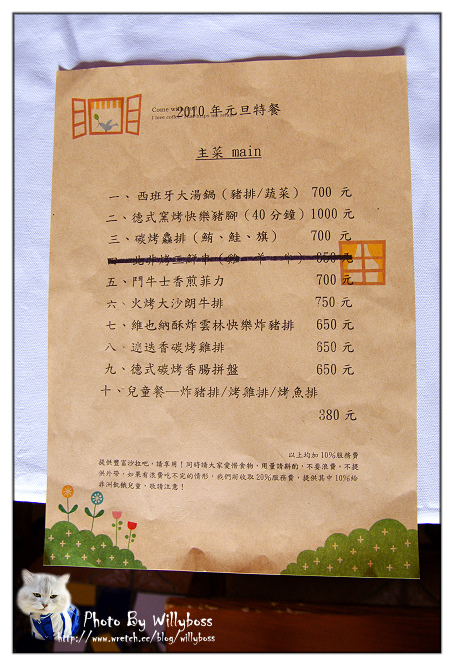 Come with
2010 年元旦特餐
主菜 main
一、西班牙大湯鍋（豬排/蔬菜） 700 元
二、德式窯烤快樂豬腳（40 分鐘）1000 元
三、碳烤魚排（鮪、鮭、旗） 700 元
650 元
五、鬥牛士香煎菲力 700 元
六、火烤大沙朗牛排 750 元
七、維也納酥炸雲林快樂炸豬排 650 元
八、迷迭香碳烤雞排 650 元
九、德式碳烤香腸拼盤 650 元
十、兒童餐—炸豬排/烤雞排/烤魚排
380 元
以上均加 10%服務費
提供豐富沙拉吧，請享用！同時請大家愛惜食物，用量請斟酌，不要浪費。不提
供外帶，如果有浪費吃不完的情形，我們將收取 20%服務費，提供其中 10%給
非洲飢餓兒童，敬請注意！
Photo By Willyboss
http://www.wretch.cc/blog/willyboss